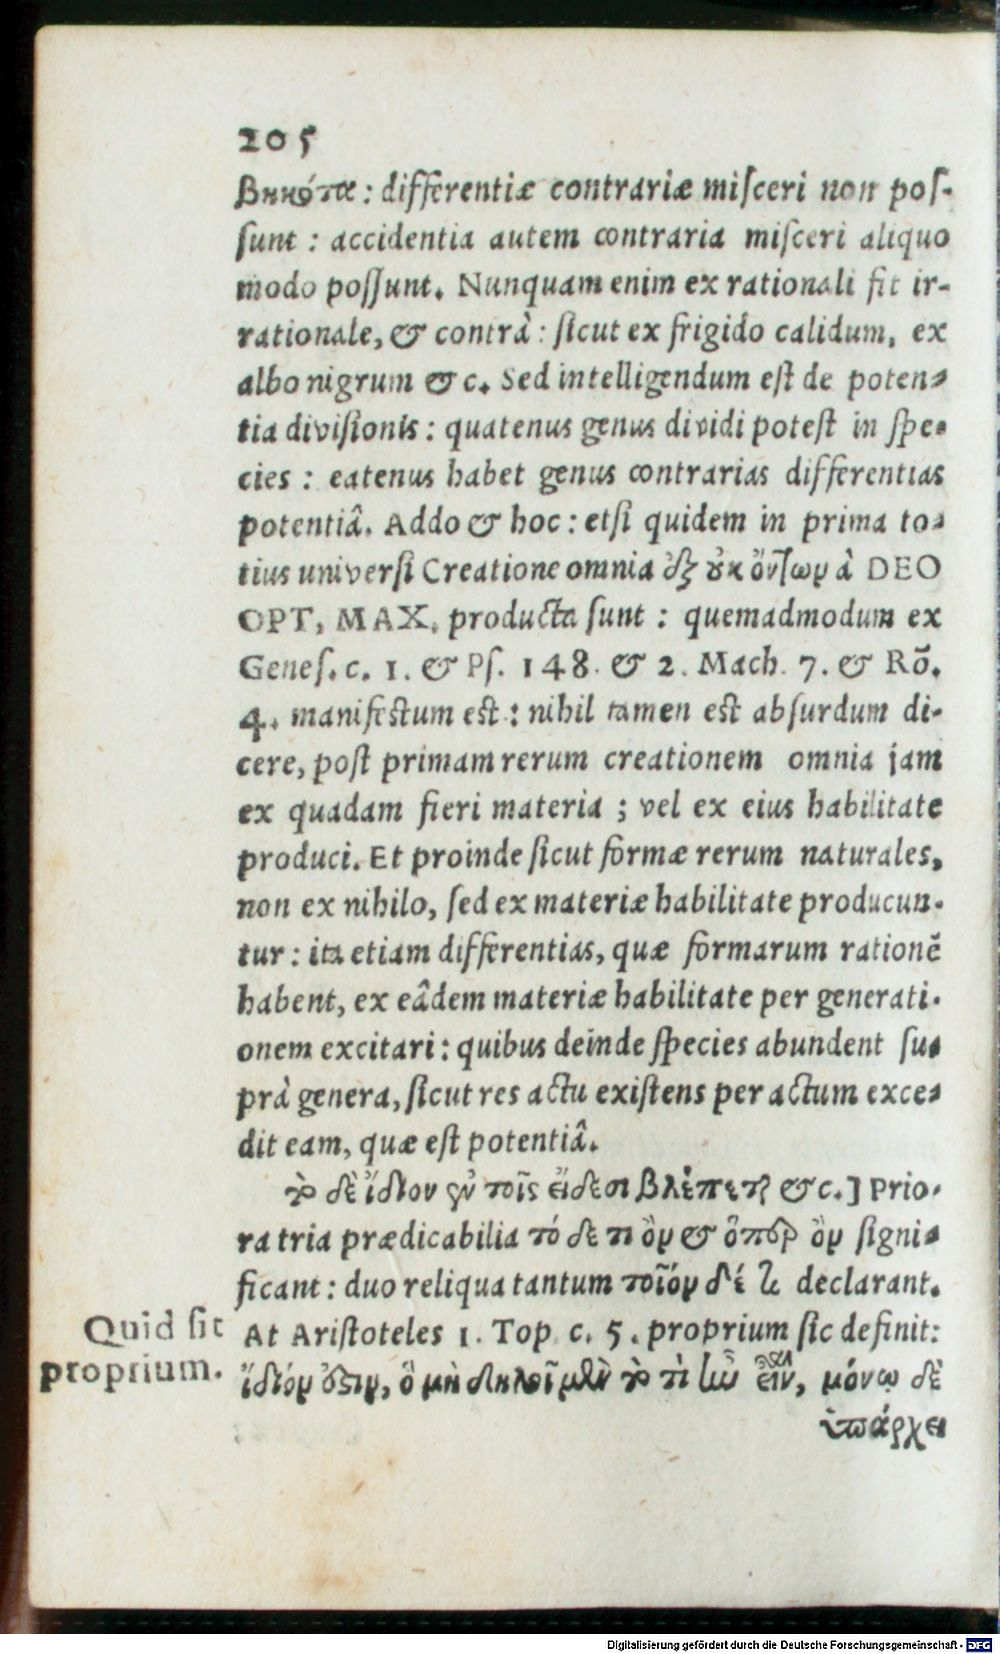 205
βηκότα: differentiæ contrariæ misceri non pos-
sunt: accidentia autem contraria misceri aliquo
modo possunt. Nunquam enim ex rationali fit ir-
rationale, & contrà: sicut ex frigido calidum, ex
albo nigrum &c. Sed intelligendum est de poten-
tia divisionis: quatenus genus dividi potest in spe-
cies: eatenus habet genus contrarias differentias
potentiâ. Addo & hoc: etsi quidem in prima to-
tius universi Creatione omnia ἐξ οὐκ ὄντων à DEO
OPT, MAX, producta sunt: quemadmodum ex
Genes. c. 1. & Ps. 148. & 2. Mach. 7. & Rō.
4. manifestum est: nihil tamen est absurdum di-
cere, post primam rerum creationem omnia jam
ex quadam fieri materia; vel ex eius habilitate
produci. Et proinde sicut formæ rerum naturales,
non ex nihilo, sed ex materiæ habilitate producun-
tur: ita etiam differentias, quæ formarum rationē
habent, ex eâdem materiæ habilitate per generati-
onem excitari: quibus deinde species abundent su-
prà genera, sicut res actu existens per actum exce-
dit eam, quæ est potentiâ.
τὸ δὲ ἴδιον ἐν τοῖς εἴδεσι βλέπεται &c.] Prio-
ra tria prædicabilia τό δε τι ὂν & ὅπερ ὂν signi-
ficant: duo reliqua tantum ποῖόν δέ τι declarant.
At Aristoteles 1. Top. c. 5. proprium sic definit:
ἴδιόν ἐστιν, ὃ μὴ δηλοῖ μὲν τὸ τὶ ἦν εἶναι, μόνῳ δὲ
ὑπάρχει
Quid sit
proprium.
Digitalisierung gefördert durch die Deutsche Forschungsgemeinschaft - DFG